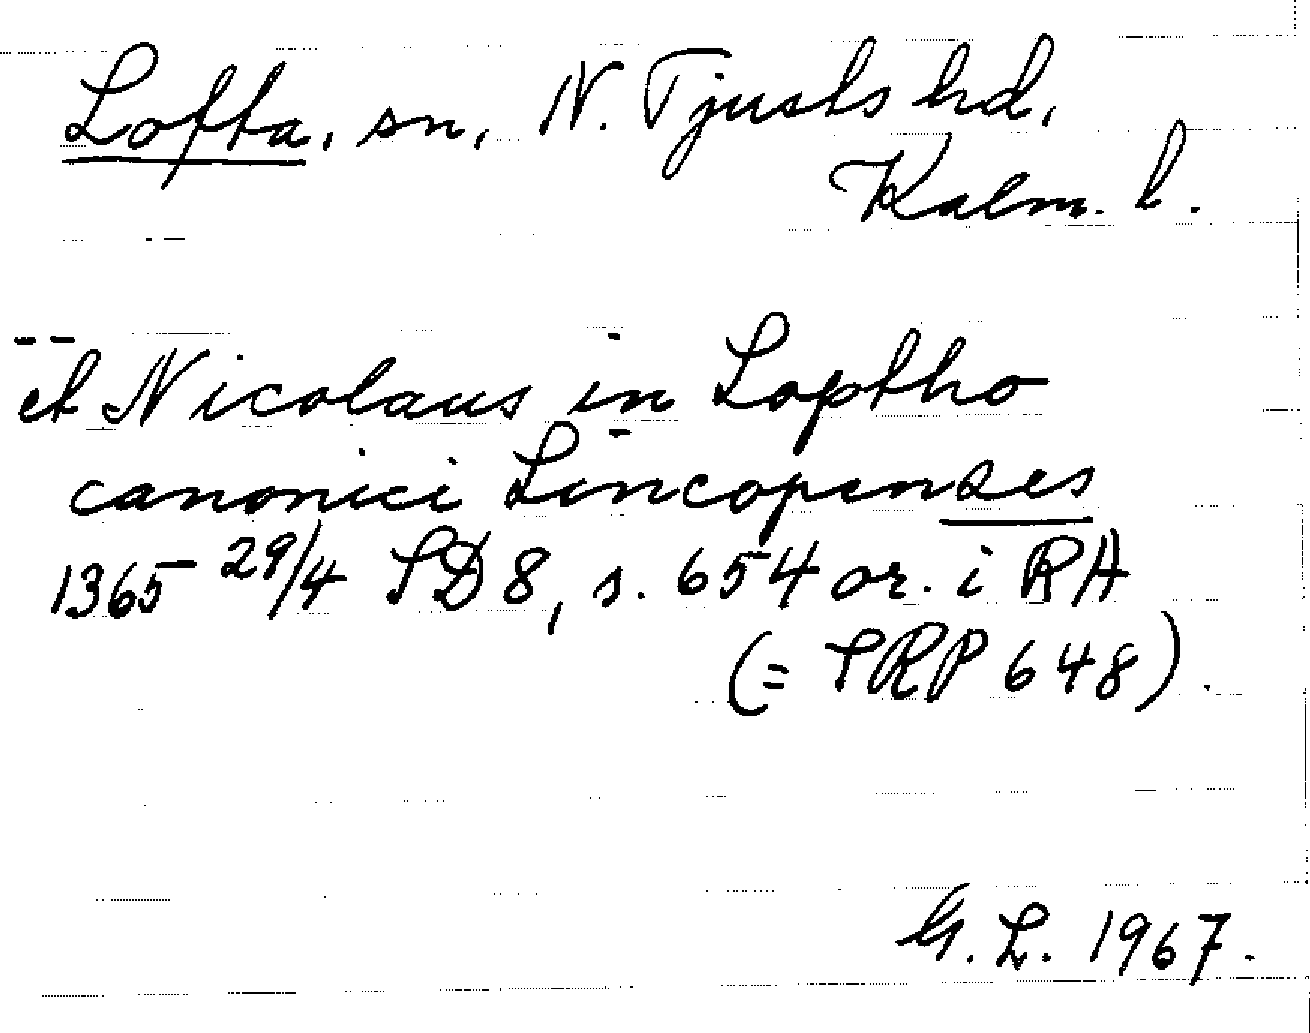 Lofta, sn, N. Tjusts hd,
Kalm. l.
--
et Nicolaus in Loptho
canonici Lincopenses
1365 29/4 SD 8, s. 654 or. i RA
(= SRP 648).
G. L. 1967.